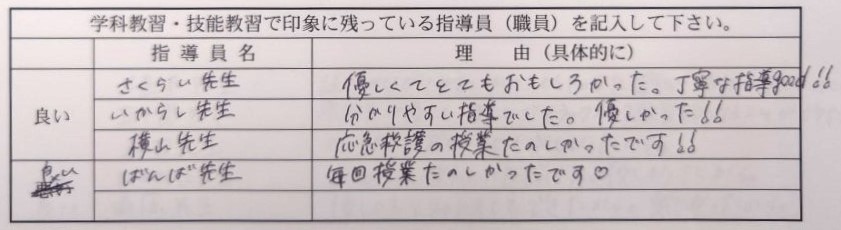 学科教習・技能教習で印象に残っている指導員（職員）を記入して下さい。
指導員名 理由（具体的に）
良い さくらい先生 優しくてとてもおもしろかった。丁寧な指導good!!
いからし先生 分かりやすい指導でした。優しかった!!
横山先生 応急救護の授業たのしかったです!!
良い ばんば先生 毎回授業たのしかったです♡